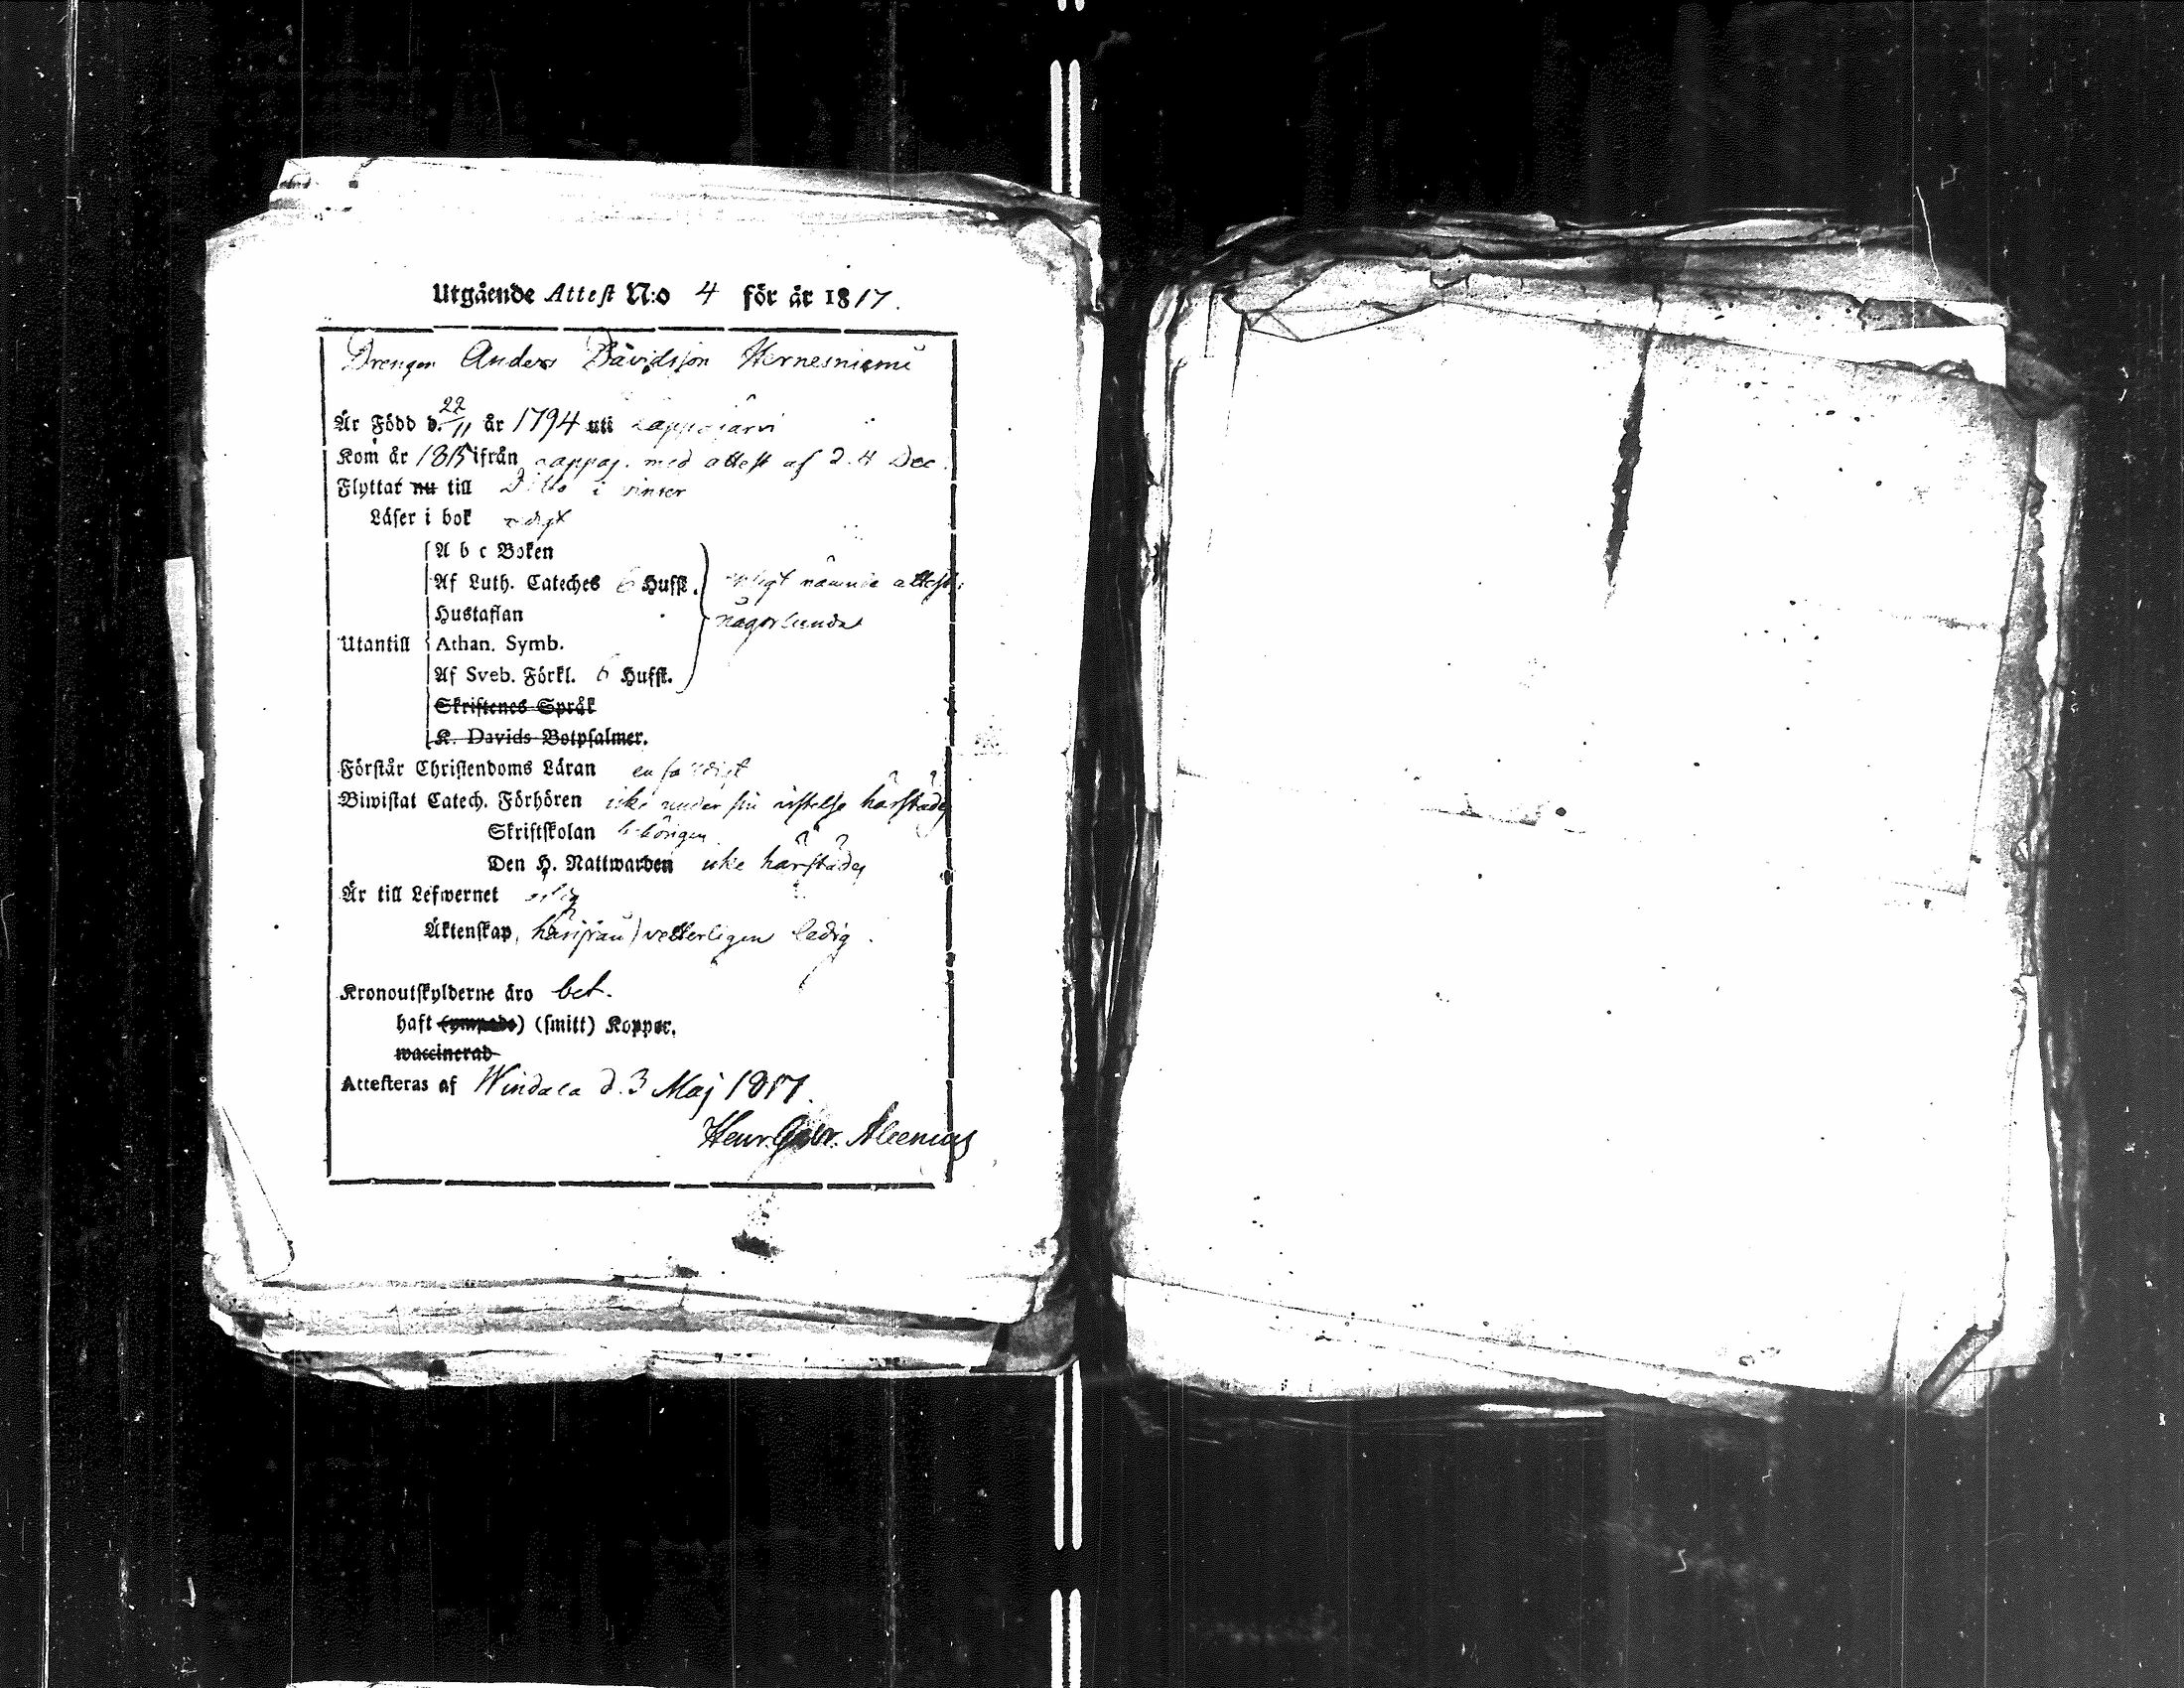 Utgående Attest N:o 4 för år 1817.
Drengen Anders Davidsson Hernesniemi
Är Född d. 22/11 år 1794 uti Lappojärvi
Kom år 1815 ifrån Lappoj. med attest af d. 4 Dec.
Flyttat nu till Ditto i vinter
Läser i bok
A b c Boken
Af Luth. Cateches 6 Hufst. enligt nämnde attest
Hustaflan någorlunda
Utantill Athan. Symb.
Af Sveb. Förkl. 6 Hufst.
Skriftenes Språk
K. Davids Botpsalmer.
Förstår Christendoms Läran enfaldigt
Biwistat Catech. Förhören icke under sin vistelse härstädes
Skriftskolan behörigen
Den H. Nattwarden icke härstädes
Är till Lefwernet
Äktenskap, härifrån) vetterligen ledig.
Kronoutskylderne äro bet.
haft (ympade) (smitt) Koppor.
waccinerad
Attesteras af Windala d. 3 Maj 1817.
Henr. Gabr. Aleenius